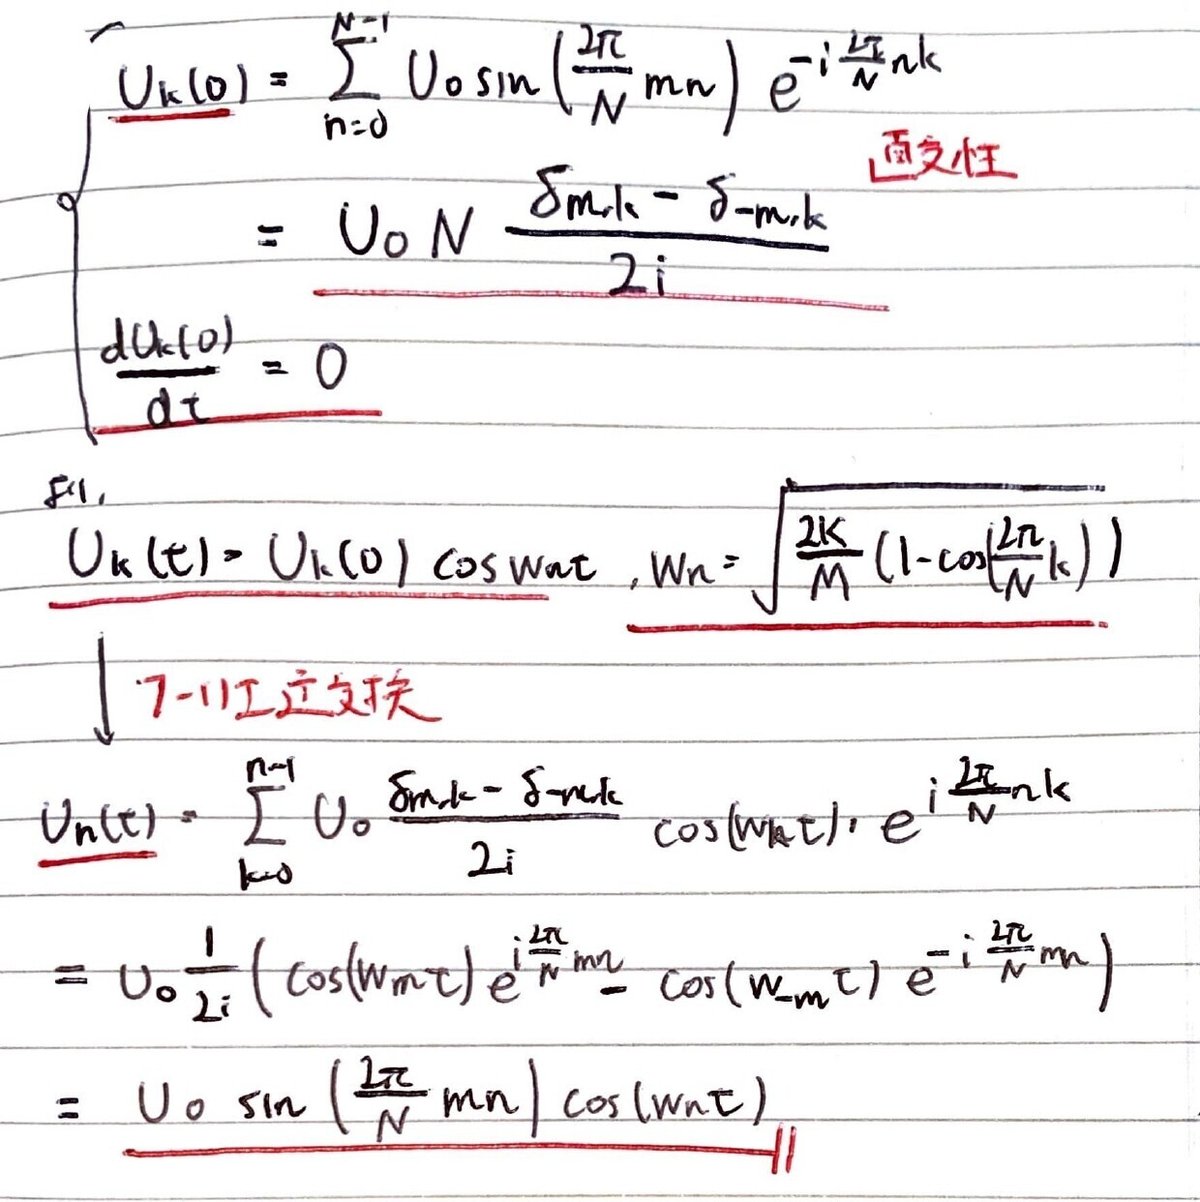 U_k(0) = \sum_{n=0}^{N-1} U_0 sin(\frac{2π}{N} mn) e^{-i\frac{2π}{N}nk}
直交性
= U_0 N \frac{δ_{m,k} - δ_{-m,k}}{2i}
\frac{dU_k(0)}{dt} = 0
より,
U_k(t) = U_k(0) cos w_n t , w_n = \sqrt{\frac{2K}{M}(1-cos(\frac{2π}{N}k))}
↓ フーリエ逆変換
U_n(t) = \sum_{k=0}^{n-1} U_0 \frac{δ_{m,k} - δ_{-m,k}}{2i} cos(w_k t)・e^{i\frac{2π}{N}nk}
= U_0 \frac{1}{2i} (cos(w_m t) e^{i\frac{2π}{N}mn} - cos(w_{-m} t) e^{-i\frac{2π}{N}mn})
= U_0 sin(\frac{2π}{N} mn) cos(w_n t)